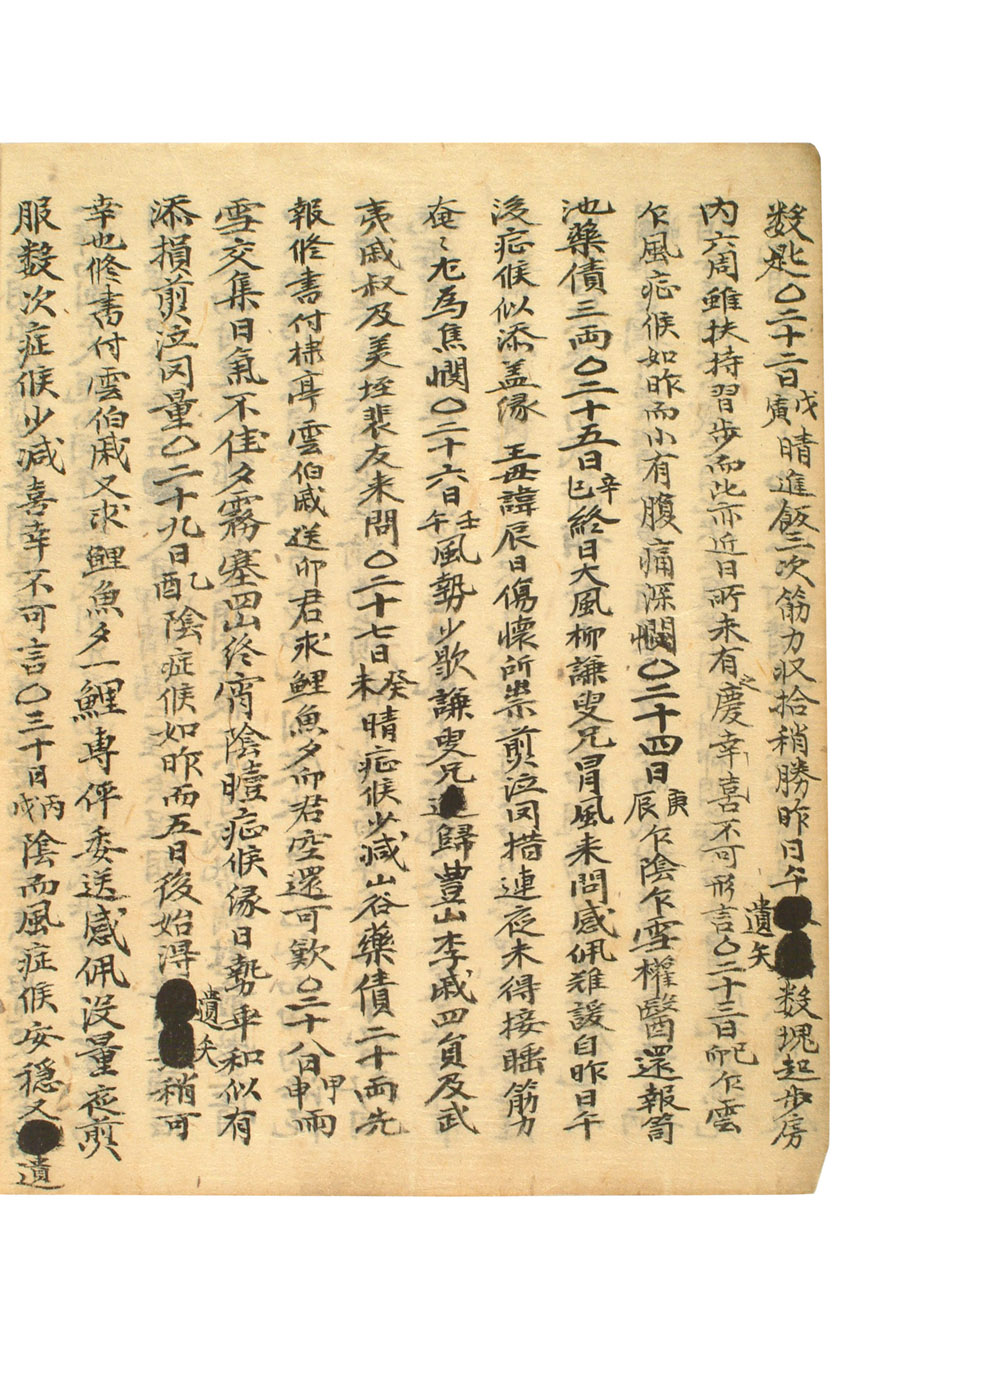 数匙○二十二日戊寅晴進飯三次筋力収拾稍勝昨日午遺矢数塊起步房
内六周雖扶持習步而此亦近日所未有之慶幸喜不可形言○二十三日己卯乍雲
乍風症候如昨而小有腹痛深憫○二十四日庚辰乍陰乍雪權醫還報笥
池藥債三両○二十五日辛巳終日大風柳謙叟兄冒風来問感佩難諼自昨日午
後症候似添盖緣 王母諱辰日傷懷所祟煎泣罔措連夜未得接睡筋力
奄〻尤為焦憫○二十六日壬午風勢少歇謙叟兄還歸豊山李戚四員及武
夷戚叔及美姪裴友来問○二十七日癸未晴症候少减山谷藥債二十両先
報修書付棣亭雲伯戚送卯君求鯉魚夕卯君空還可歎○二十八日甲申雨
雪交集日氣不佳夕霧塞四山終宵陰曀症候緣日勢乖和似有
添損煎泣罔量○二十九日乙酉陰症候如昨而五日後始得遺矢稍可
幸也修書付雲伯戚又求鯉魚夕一鯉専伻委送感佩沒量夜煎
服数次症候少减喜幸不可言○三十日丙戌陰而風症候安穩又遺